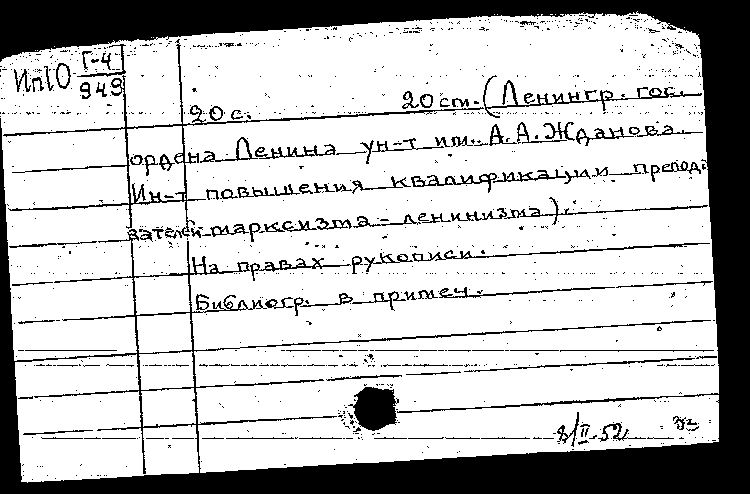 ИпIO Г-4
949
20 с. 20 cm. (Ленингр. гос.
ордена Ленина ун-т им. А.А. Жданова.
Ин-т повышения квалификации препода
вателей марксизма-ленинизма).
На правах рукописи.
Библиогр. в примеч.
8/II.52